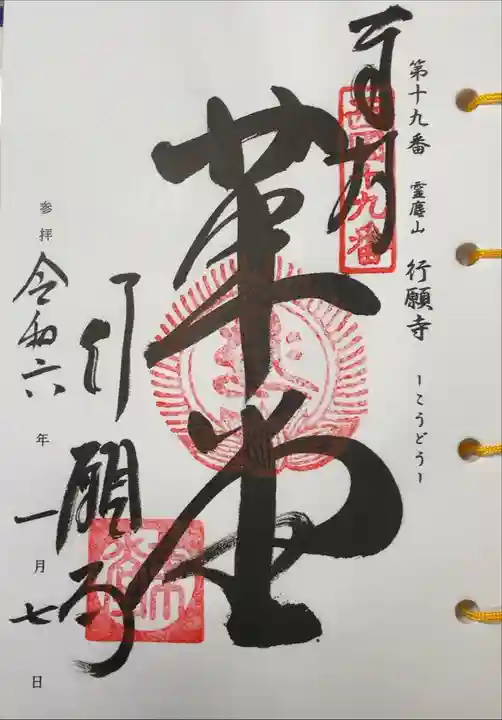 第十九番 霊麀山 行願寺 ーこうどうー
奉拝
西国十九番
革堂
行願寺
参拝 令和六年一月七日